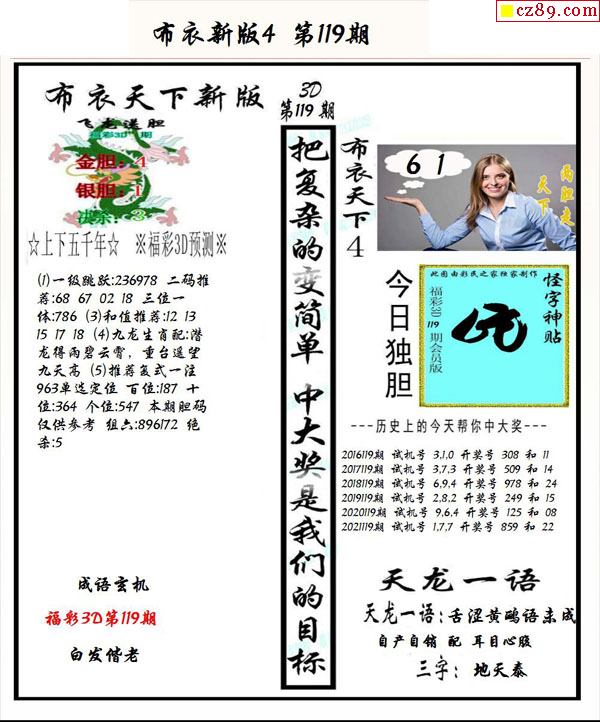 cz89.com
布衣新版4 第119期
布衣天下新版
飞龙送胆
福彩3D 期
金胆: 4
银胆: 1
决杀: 3
☆上下五千年☆ ※福彩3D预测※
(1)一级跳跃:236978 二码推
荐:68 67 02 18 三位一
体:786 (3)和值推荐:12 13
15 17 18 (4)九龙生肖配:潜
龙得雨碧云霄, 重台遥望
九天高 (5)推荐复式一注
963单选定位 百位:187 十
位:364 个位:547 本期胆码
仅供参考 组六:896172 绝
杀:5
成语玄机
福彩3D第119期
白发偕老
3D
第119 期
把复杂的变简单 中大奖是我们的目标
布衣天下4
61
两胆走
天下
今日独胆
此图由彩民之家独家制作
福彩3D 119 期会员版
怪字神贴
---历史上的今天帮你中大奖---
2016119期 试机号 3,1,0 开奖号 308 和 11
2017119期 试机号 3,7,3 开奖号 509 和 14
2018119期 试机号 6,9,4 开奖号 978 和 24
2019119期 试机号 2,8,2 开奖号 249 和 15
2020119期 试机号 9,6,4 开奖号 125 和 08
2021119期 试机号 1,7,7 开奖号 859 和 22
天龙一语
天龙一语: 舌涩黄鹂语未成
自产自销 配 耳目心腹
三字: 地天泰